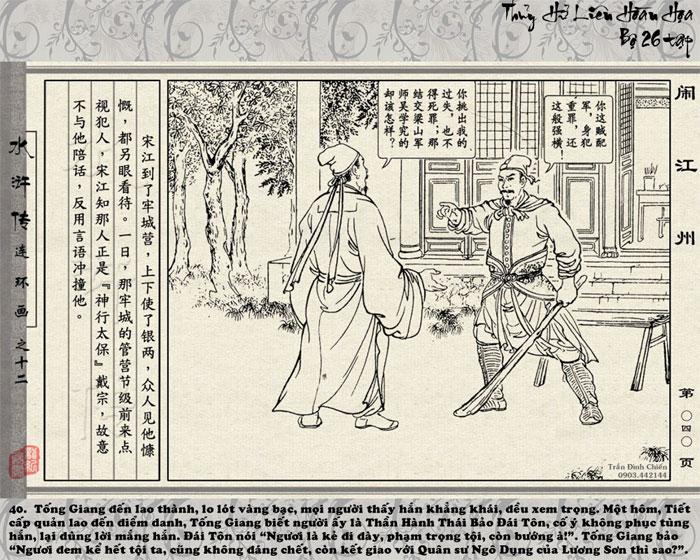 Thủy Hử Liên Hoàn Họa
Bộ 26 tập
闹江州
水浒传连环画之十二
你这贼配
军，身犯
重罪，还
这般强横！
你挑出我的
过失，也不
得死罪；那
结交梁山军
师吴学究的
却该怎样？
宋江到了牢城营，上下使了银两，众人见他慷
慨，都另眼看待。一日，那牢城的管营节级前来点
视犯人，宋江知那人正是『神行太保』戴宗，故意
不与他陪话，反用言语冲撞他。
第〇四〇页
Trần Đình Chiến
0903.442144
40. Tống Giang đến lao thành, lo lót vàng bạc, mọi người thấy hắn khảng khái, đều xem trọng. Một hôm, Tiết
cấp quản lao đến điểm danh, Tống Giang biết người ấy là Thần Hành Thái Bảo Đái Tôn, cố ý không phục tùng
hắn, lại dùng lời mắng hắn. Đái Tôn nói “Ngươi là kẻ đi đày, phạm trọng tội, còn bướng à!”. Tống Giang bảo
“Ngươi đem kể hết tội ta, cũng không đáng chết, còn kết giao với Quân sư Ngô Dụng của Lương Sơn thì sao?”